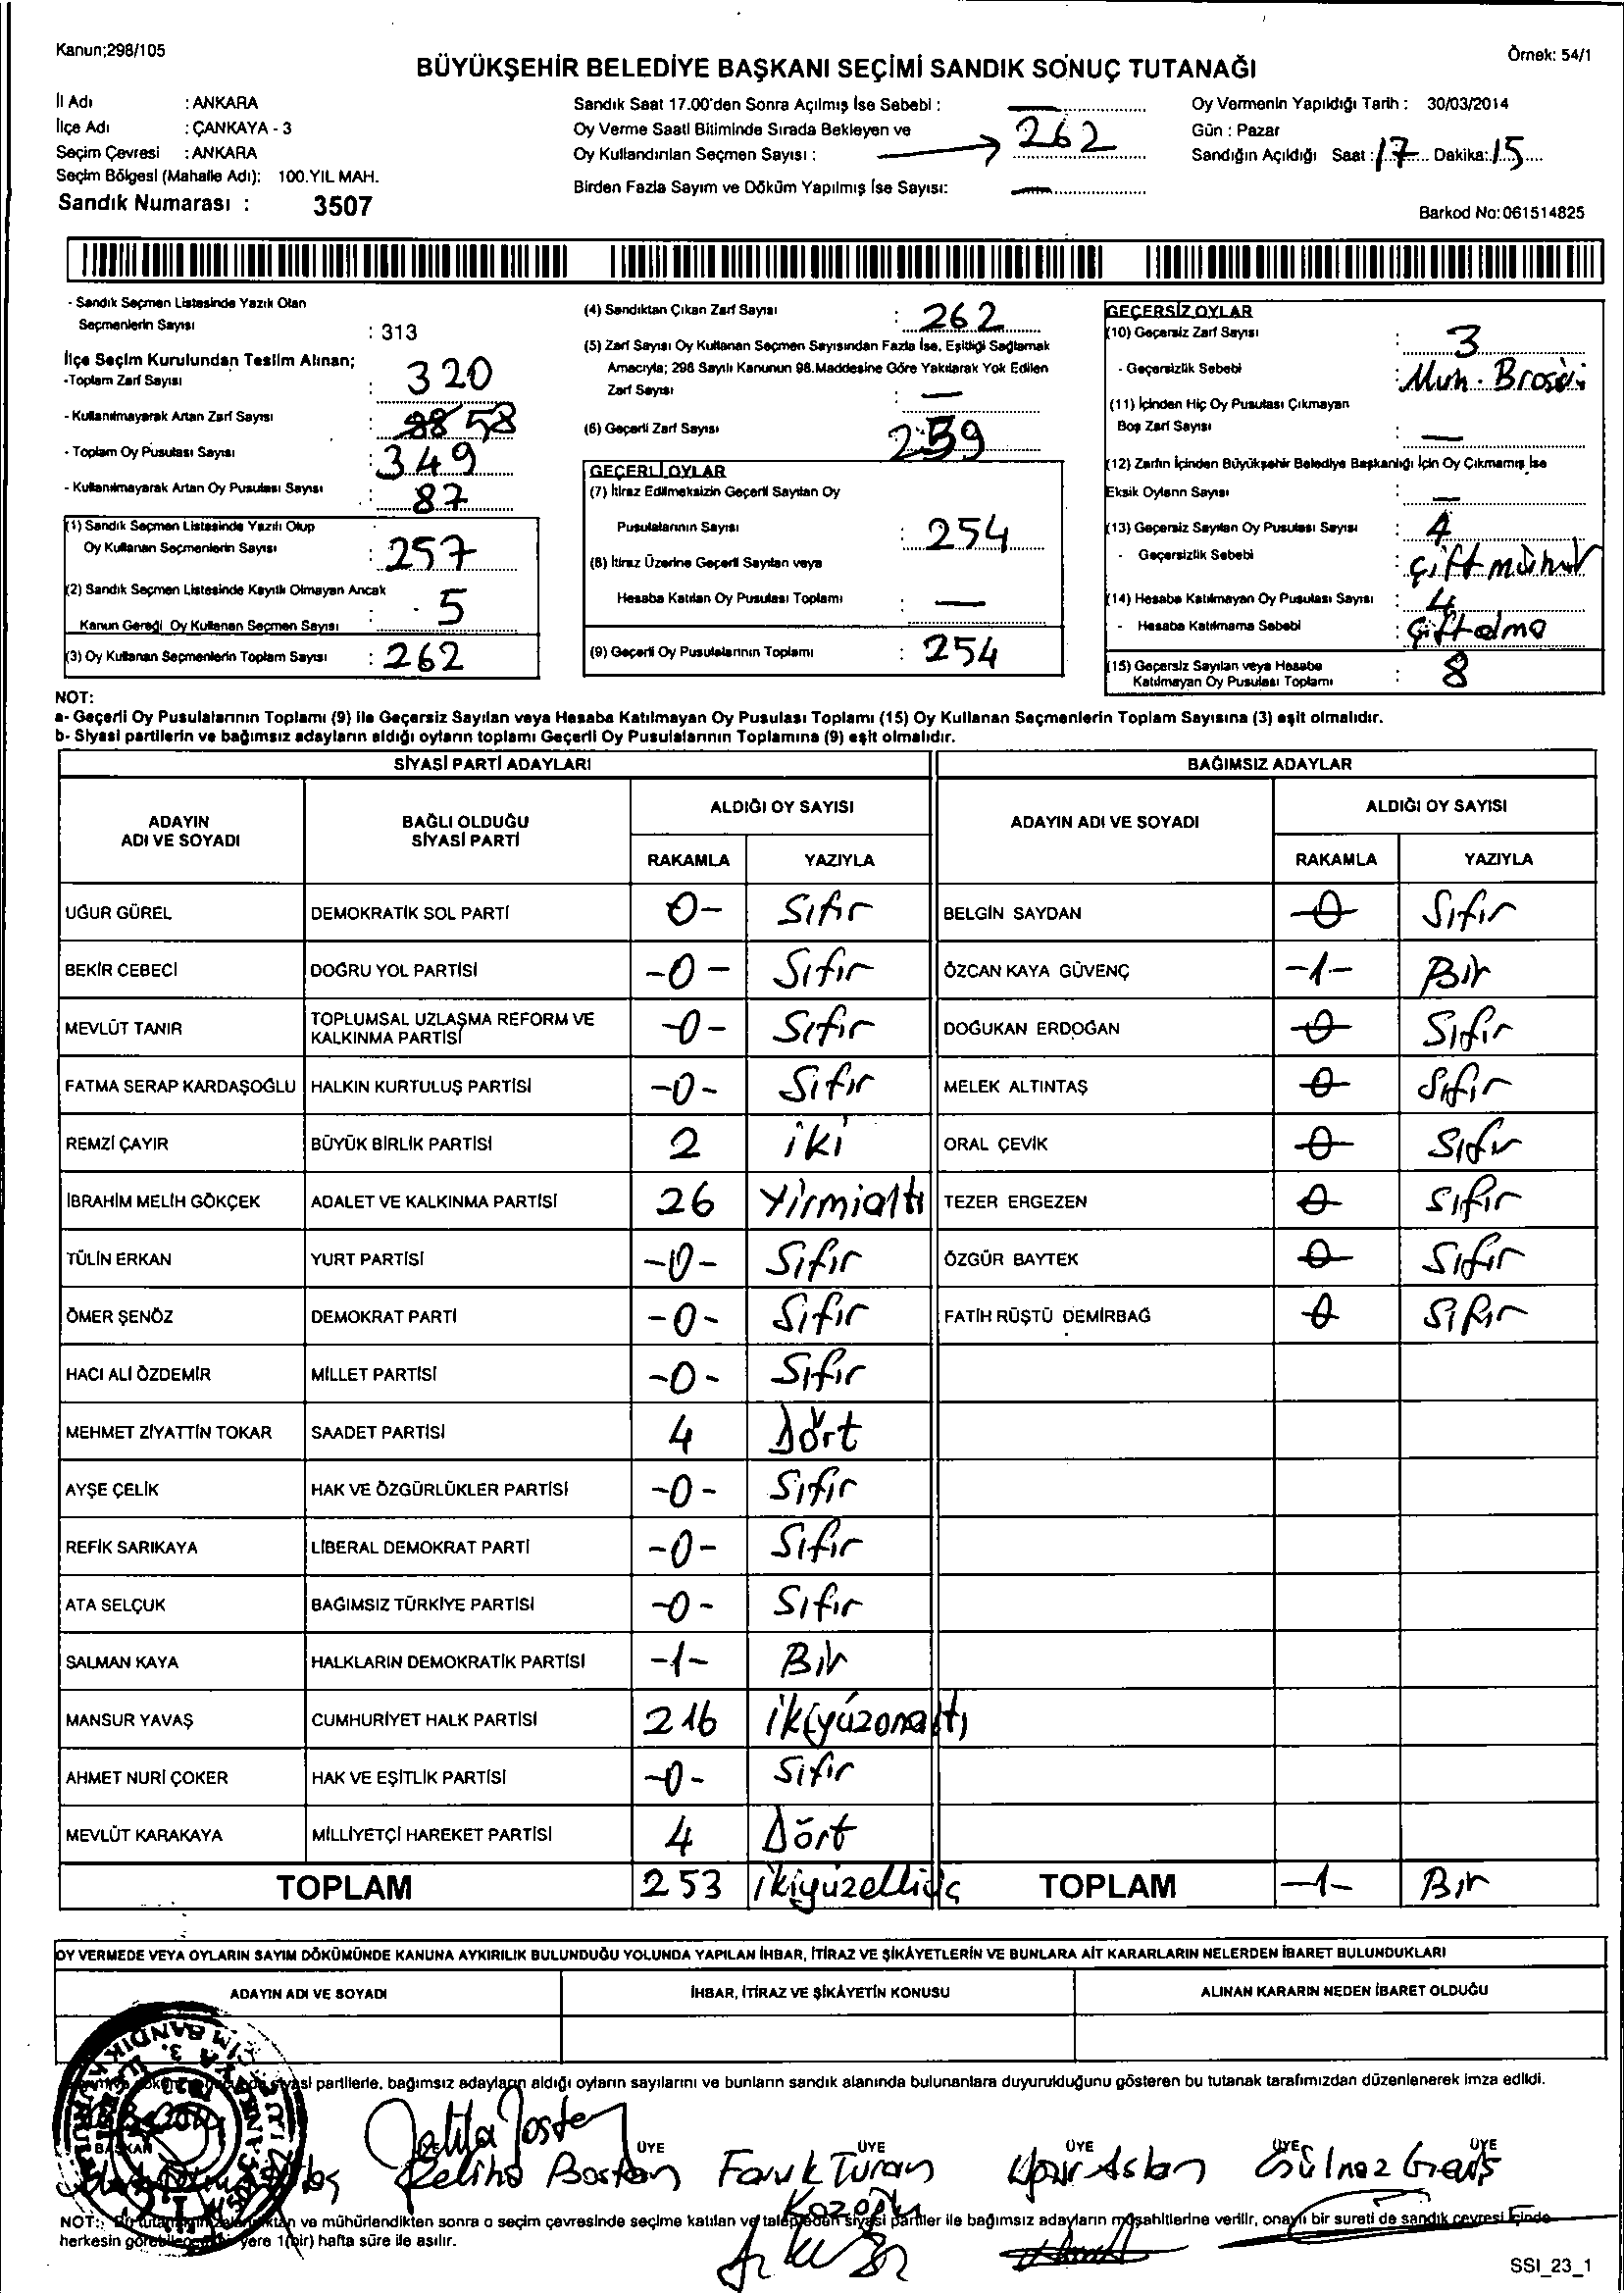 Kanun;298/105
Örnek: 54/1
BÜYÜKŞEHİR BELEDİYE BAŞKANI SEÇİMİ SANDIK SONUÇ TUTANAĞI
İl Adı : ANKARA
İlçe Adı : ÇANKAYA - 3
Seçim Çevresi : ANKARA
Seçim Bölgesi (Mahalle Adı): 100.YIL MAH.
Sandık Numarası : 3507
Sandık Saat 17.00'den Sonra Açılmış İse Sebebi : —
Oy Verme Saati Bitiminde Sırada Bekleyen ve
Oy Kullandırılan Seçmen Sayısı : → 262
Birden Fazla Sayım ve Döküm Yapılmış İse Sayısı: —
Oy Vermenin Yapıldığı Tarih : 30/03/2014
Gün : Pazar
Sandığın Açıldığı Saat : 17 Dakika: 15
Barkod No:061514825
- Sandık Seçmen Listesinde Yazılı Olan
Seçmenlerin Sayısı : 313
İlçe Seçim Kurulundan Teslim Alınan;
-Toplam Zarf Sayısı : 320
- Kullanılmayarak Artan Zarf Sayısı : 58
- Toplam Oy Pusulası Sayısı : 349
- Kullanılmayarak Artan Oy Pusulası Sayısı : 87
(1) Sandık Seçmen Listesinde Yazılı Olup
Oy Kullanan Seçmenlerin Sayısı : 257
(2) Sandık Seçmen Listesinde Kayıtlı Olmayan Ancak
Kanun Gereği Oy Kullanan Seçmen Sayısı : 5
(3) Oy Kullanan Seçmenlerin Toplam Sayısı : 262
(4) Sandıktan Çıkan Zarf Sayısı : 262
(5) Zarf Sayısı Oy Kullanan Seçmen Sayısından Fazla İse, Eşitliği Sağlamak
Amacıyla; 298 Sayılı Kanunun 98.Maddesine Göre Yakılarak Yok Edilen
Zarf Sayısı : —
(6) Geçerli Zarf Sayısı : 259
GEÇERLİ OYLAR
(7) İtiraz Edilmeksizin Geçerli Sayılan Oy
Pusulalarının Sayısı : 254
(8) İtiraz Üzerine Geçerli Sayılan veya
Hesaba Katılan Oy Pusulası Toplamı : —
(9) Geçerli Oy Pusulalarının Toplamı : 254
GEÇERSİZ OYLAR
(10) Geçersiz Zarf Sayısı : 3
- Geçersizlik Sebebi : Muh.
(11) İçinden Hiç Oy Pusulası Çıkmayan
Boş Zarf Sayısı : —
(12) Zarfın İçinden Büyükşehir Belediye Başkanlığı İçin Oy Çıkmamış İse
Eksik Oyların Sayısı : —
(13) Geçersiz Sayılan Oy Pusulası Sayısı : 4
- Geçersizlik Sebebi : Çift mühür
(14) Hesaba Katılmayan Oy Pusulası Sayısı : 4
- Hesaba Katılmama Sebebi : Çift
(15) Geçersiz Sayılan veya Hesaba
Katılmayan Oy Pusulası Toplamı : 8
NOT:
a- Geçerli Oy Pusulalarının Toplamı (9) ile Geçersiz Sayılan veya Hesaba Katılmayan Oy Pusulası Toplamı (15) Oy Kullanan Seçmenlerin Toplam Sayısına (3) eşit olmalıdır.
b- Siyasi partilerin ve bağımsız adayların aldığı oyların toplamı Geçerli Oy Pusulalarının Toplamına (9) eşit olmalıdır.
SİYASİ PARTİ ADAYLARI BAĞIMSIZ ADAYLAR
ADAYIN ADI VE SOYADI BAĞLI OLDUĞU SİYASİ PARTİ ALDIĞI OY SAYISI ADAYIN ADI VE SOYADI ALDIĞI OY SAYISI
RAKAMLA YAZIYLA RAKAMLA YAZIYLA
UĞUR GÜREL DEMOKRATİK SOL PARTİ 0- Sıfır BELGİN SAYDAN 0 Sıfır
BEKİR CEBECİ DOĞRU YOL PARTİSİ -0- Sıfır ÖZCAN KAYA GÜVENÇ -1- Bir
MEVLÜT TANIR TOPLUMSAL UZLAŞMA REFORM VE KALKINMA PARTİSİ -0- Sıfır DOĞUKAN ERDOĞAN 0 Sıfır
FATMA SERAP KARDAŞOĞLU HALKIN KURTULUŞ PARTİSİ -0- Sıfır MELEK ALTINTAŞ 0 Sıfır
REMZİ ÇAYIR BÜYÜK BİRLİK PARTİSİ 2 iki ORAL ÇEVİK 0 Sıfır
İBRAHİM MELİH GÖKÇEK ADALET VE KALKINMA PARTİSİ 26 Yirmialtı TEZER ERGEZEN 0 Sıfır
TÜLİN ERKAN YURT PARTİSİ -0- Sıfır ÖZGÜR BAYTEK 0 Sıfır
ÖMER ŞENÖZ DEMOKRAT PARTİ -0- Sıfır FATİH RÜŞTÜ DEMİRBAĞ 0 Sıfır
HACI ALİ ÖZDEMİR MİLLET PARTİSİ -0- Sıfır
MEHMET ZİYATTİN TOKAR SAADET PARTİSİ 4 Dört
AYŞE ÇELİK HAK VE ÖZGÜRLÜKLER PARTİSİ -0- Sıfır
REFİK SARIKAYA LİBERAL DEMOKRAT PARTİ -0- Sıfır
ATA SELÇUK BAĞIMSIZ TÜRKİYE PARTİSİ -0- Sıfır
SALMAN KAYA HALKLARIN DEMOKRATİK PARTİSİ -1- Bir
MANSUR YAVAŞ CUMHURİYET HALK PARTİSİ 216 ikiyüzonaltı
AHMET NURİ ÇOKER HAK VE EŞİTLİK PARTİSİ -0- Sıfır
MEVLÜT KARAKAYA MİLLİYETÇİ HAREKET PARTİSİ 4 Dört
TOPLAM 253 ikiyüzelliüç TOPLAM -1- Bir
OY VERMEDE VEYA OYLARIN SAYIM DÖKÜMÜNDE KANUNA AYKIRILIK BULUNDUĞU YOLUNDA YAPILAN İHBAR, İTİRAZ VE ŞİKÂYETLERİN VE BUNLARA AİT KARARLARIN NELERDEN İBARET BULUNDUKLARI
ADAYIN ADI VE SOYADI İHBAR, İTİRAZ VE ŞİKÂYETİN KONUSU ALINAN KARARIN NEDEN İBARET OLDUĞU
siyasi partilerle, bağımsız adayların aldığı oyların sayılarını ve bunların sandık alanında bulunanlara duyurulduğunu gösteren bu tutanak tarafımızdan düzenlenerek imza edildi.
BAŞKAN ÜYE ÜYE ÜYE ÜYE ÜYE
Bostan Faruk Turan Aslan Gülnaz
NOT: ve mühürlendikten sonra o seçim çevresinde seçime katılan ve talep eden siyasi partiler ile bağımsız adayların müşahitlerine verilir, onaylı bir sureti de sandık çevresi içinde
herkesin görebileceği bir yere 1(bir) hafta süre ile asılır.
SSI_23_1